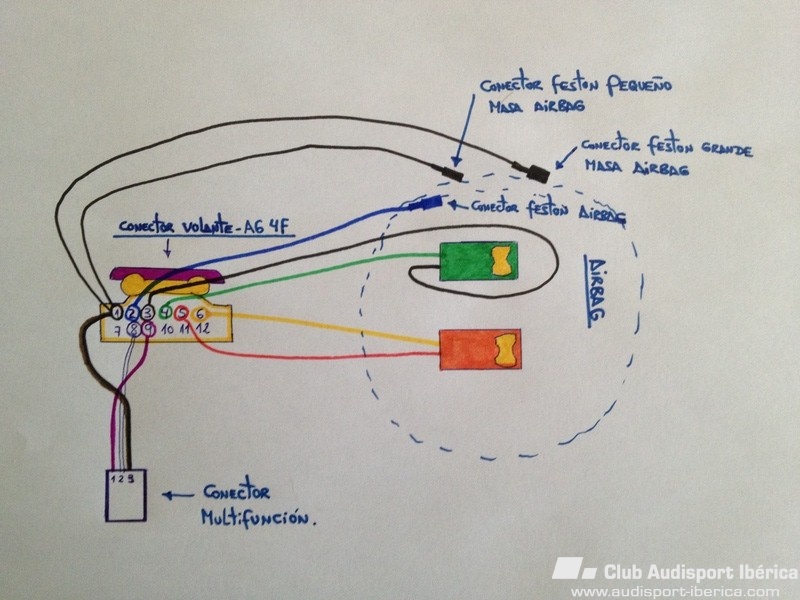 CONECTOR FESTON PEQUEÑO
MASA AIRBAG
CONECTOR FESTON GRANDE
MASA AIRBAG
CONECTOR FESTON AIRBAG
CONECTOR VOLANTE-A6 4F
AIRBAG
1 2 3 4 5 6
7 8 9 10 11 12
1 2 3
CONECTOR
MULTIFUNCIÓN.
Club Audisport Ibérica
www.audisport-iberica.com